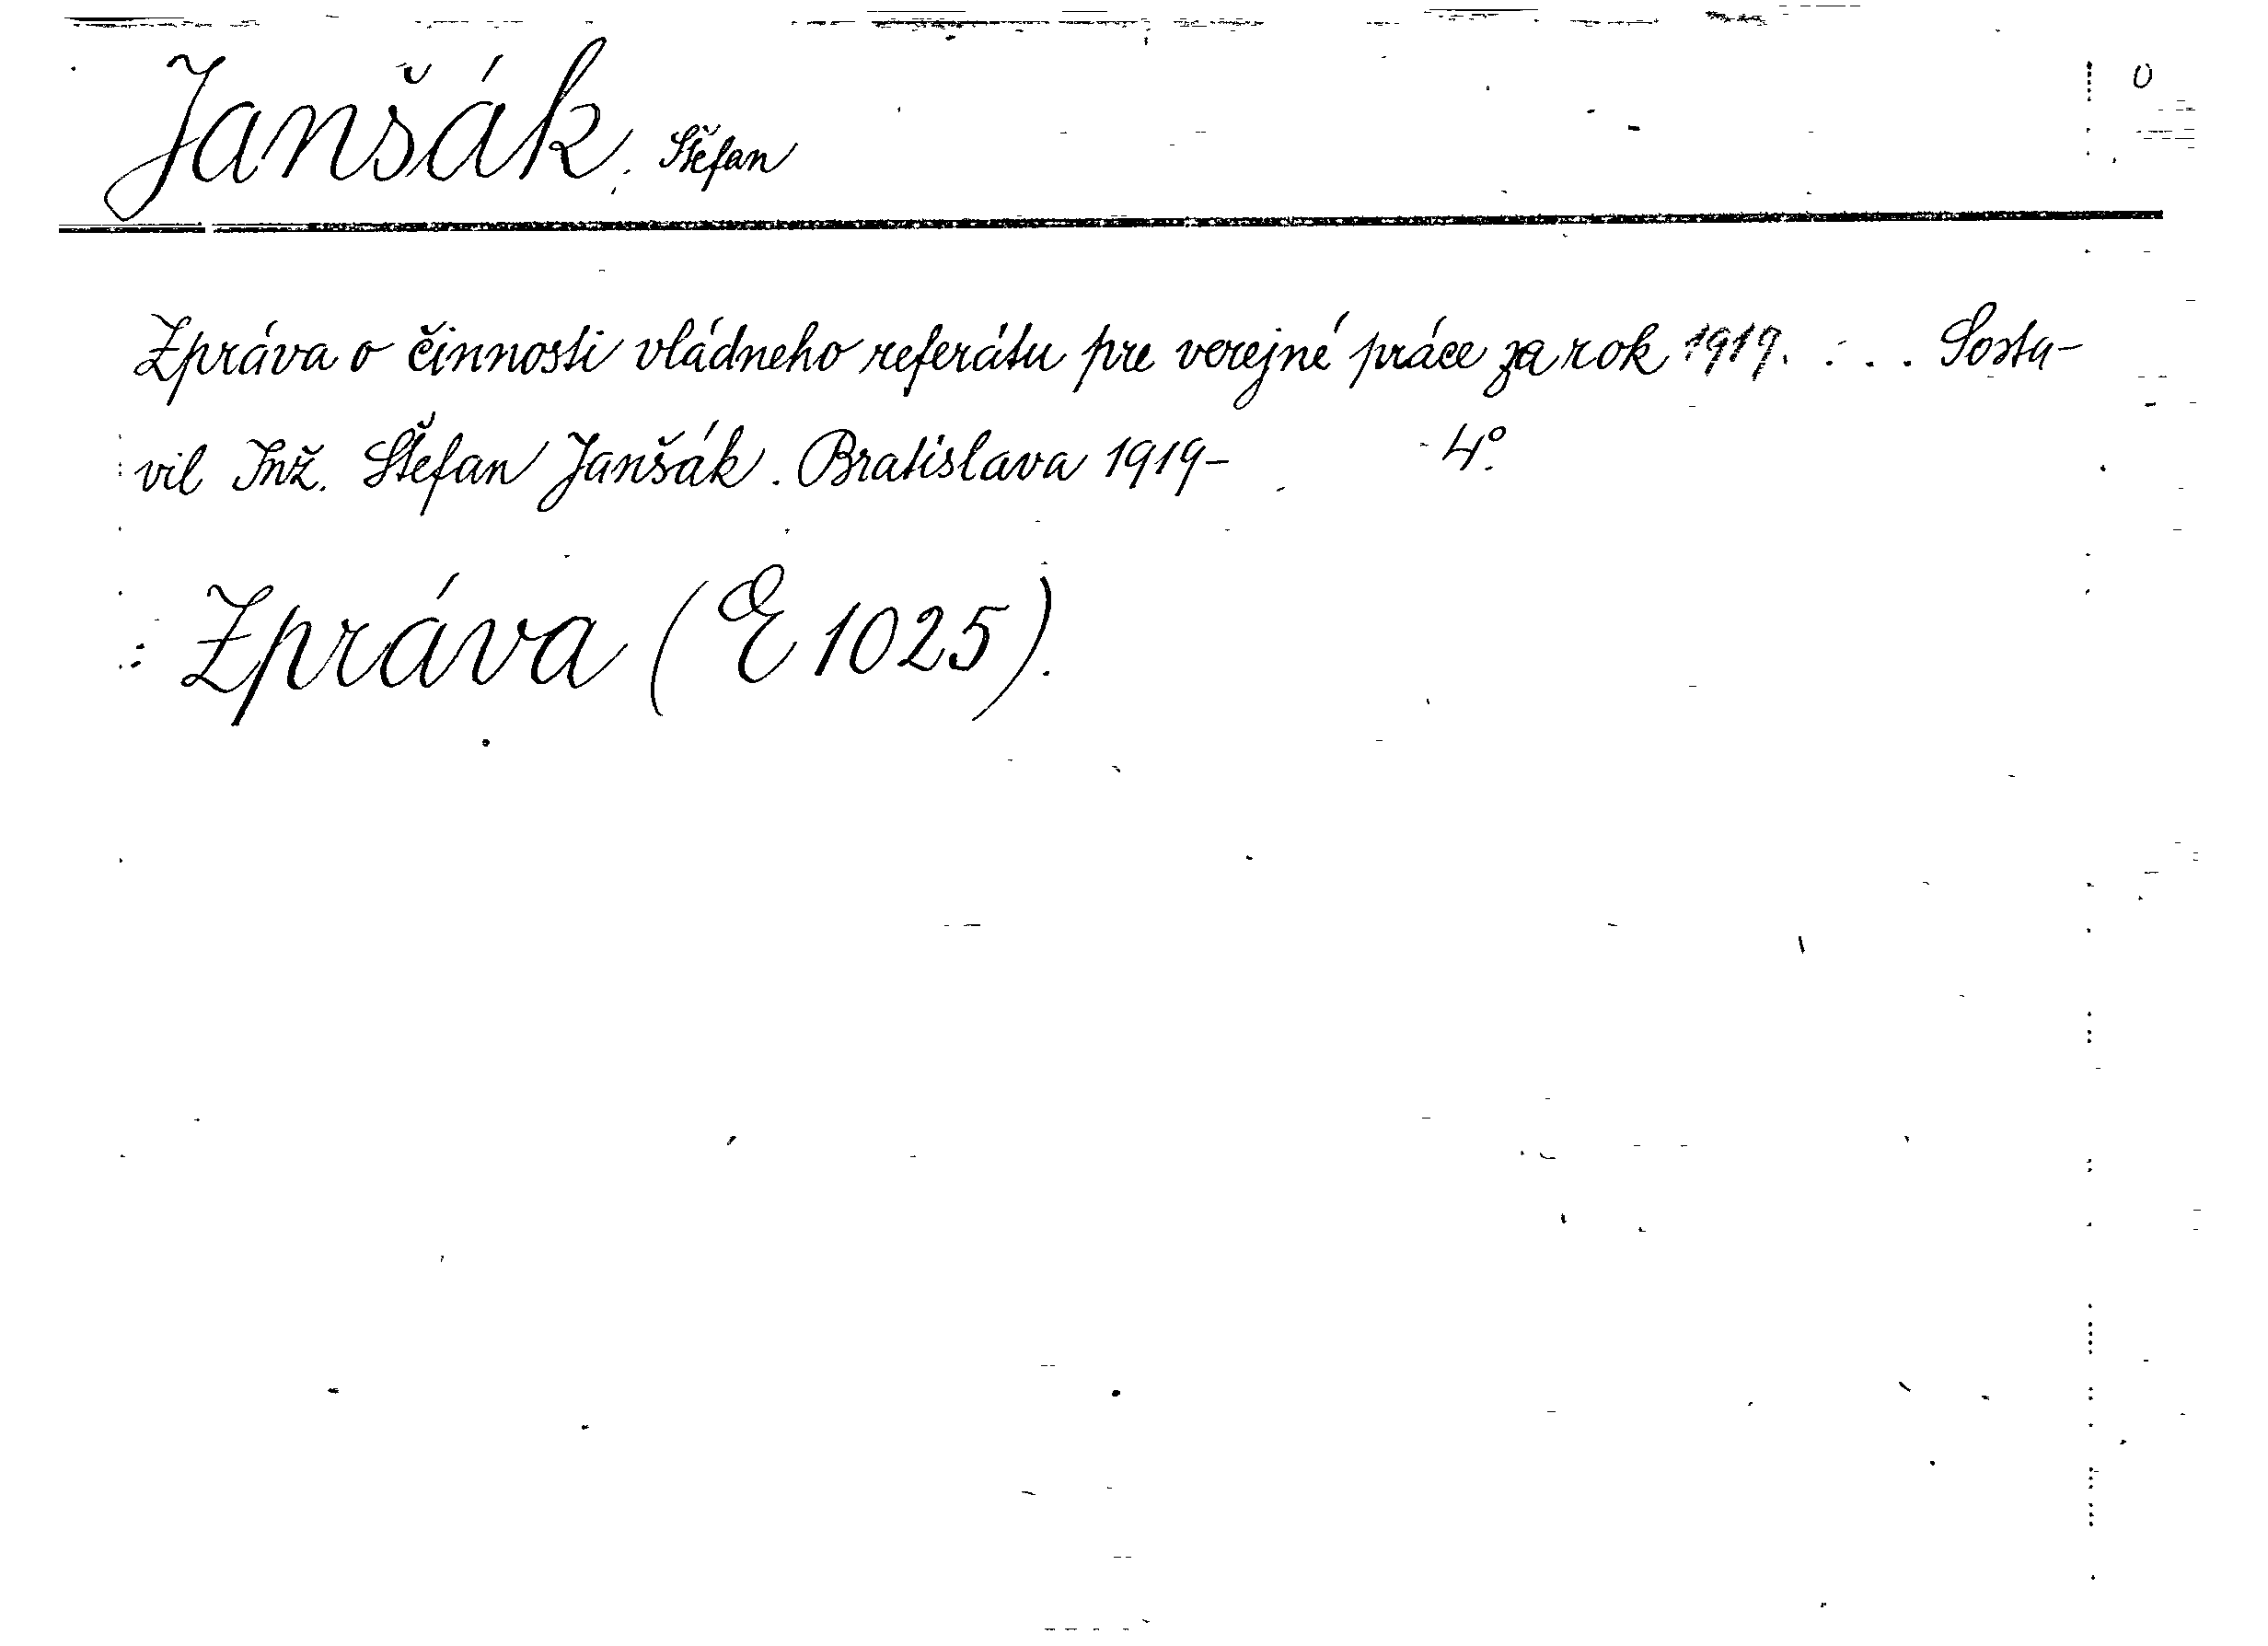 Janšák, Štefan
Zpráva o činnosti vládneho referátu pre verejné práce za rok 1919. . . . Sosta-
vil Inž. Štefan Janšák. Bratislava 1919- 4°.
Zpráva (E 1025).